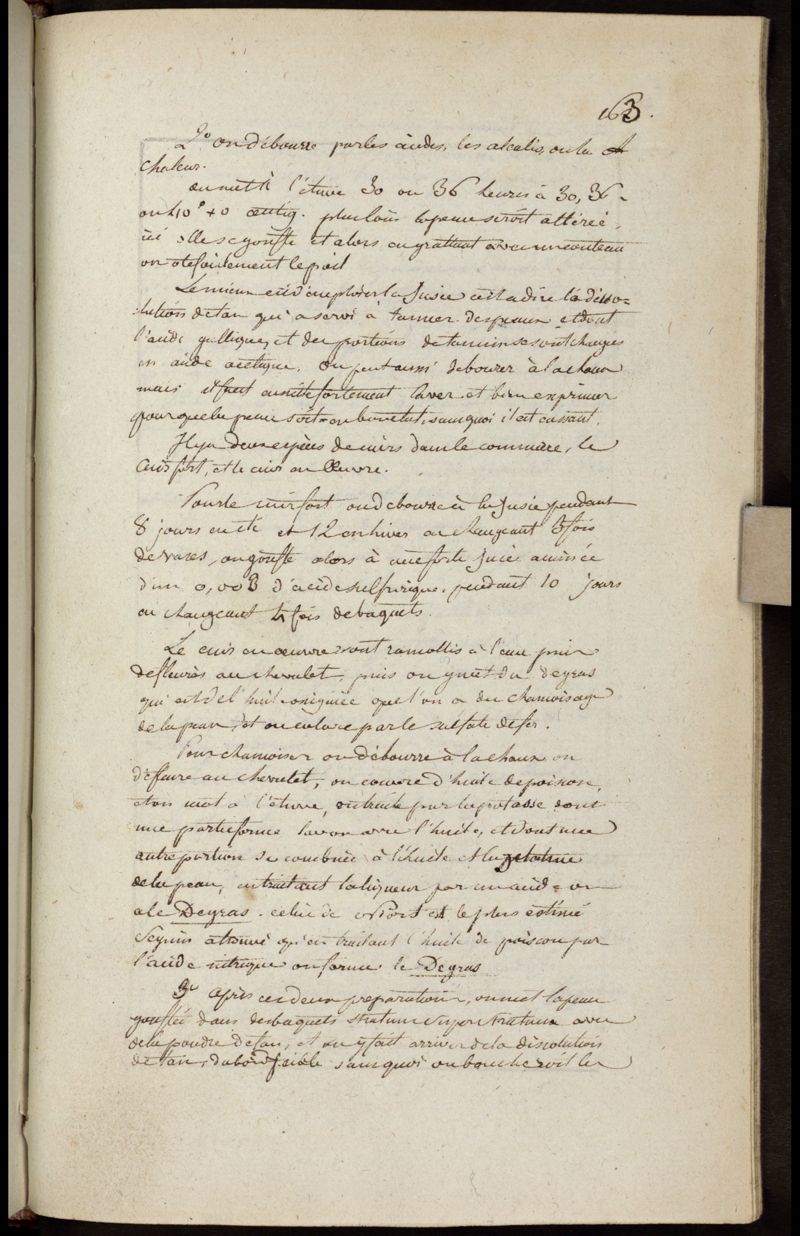 163.
2° on débourre par les acides, les alcalis, ou la
chaleur.
on met à l'étuve 30 ou 36 heures à 30, 36
ou 40° +0 centig. plus loin la peau seroit altérée,
ici elle se gonfle et alors en grattant avec un couteau
on ote facilement le poil
Le mieux est d'emploier la Jusée c'est a dire la disso=
lution de tan qui a servi à tanner des peaux et dont
l'acide gallique, et des portions de tannin se sont changés
en acide acétique. on peut aussi debourer à la chaux
mais il faut ensuite fortement laver et bien exprimer
pour que la peau soit en bon etat, sans quoi il est cassant.
Il y a deux espèces de cuirs dans le commerce, le
Cuir fort, et le cuir en Œuvre.
Pour le cuir fort on debourre à la Jusée pendant
8 jours en été et 12 en hiver en changeant 3 fois
de vases, on gonfle alors à une forte jusée animée
d'un 0,003 d'acide sulfurique. pendant 10 jours
en changeant 4 fois de baquets.
Le cuir en œuvre sont ramollis à l'eau puis
defleurés au chevalet, puis on y met du degras
qui est de l'huile oxiginée que l'on a du chamoisage
de la peau, et on colore par le sulfate de fer.
Pour chamoiser on débourre à la chaux on
d'efleure au chevalet, on couvre d'huile de poisson,
et on met à l'étuve, on traite par la potasse dont
une partie forme savon avec l'huile, et dont une
autre portion se combine à l'huile et la gelatine
de la peau, en traitant la liqueur par un acide on
a le Degras. celui de Niort est le plus estimé
Seguin a trouvé qu'en traitant l'huile de poisson par
l'acide nitrique on forme le Degras
3° après ces deux preparations, on met la peau
gonflée dans des baquets stratum super stratum avec
de la poudre de tan, et on y fait arriver de la dissolution
de tan, d'abord faible sans quoi on boucheroit les